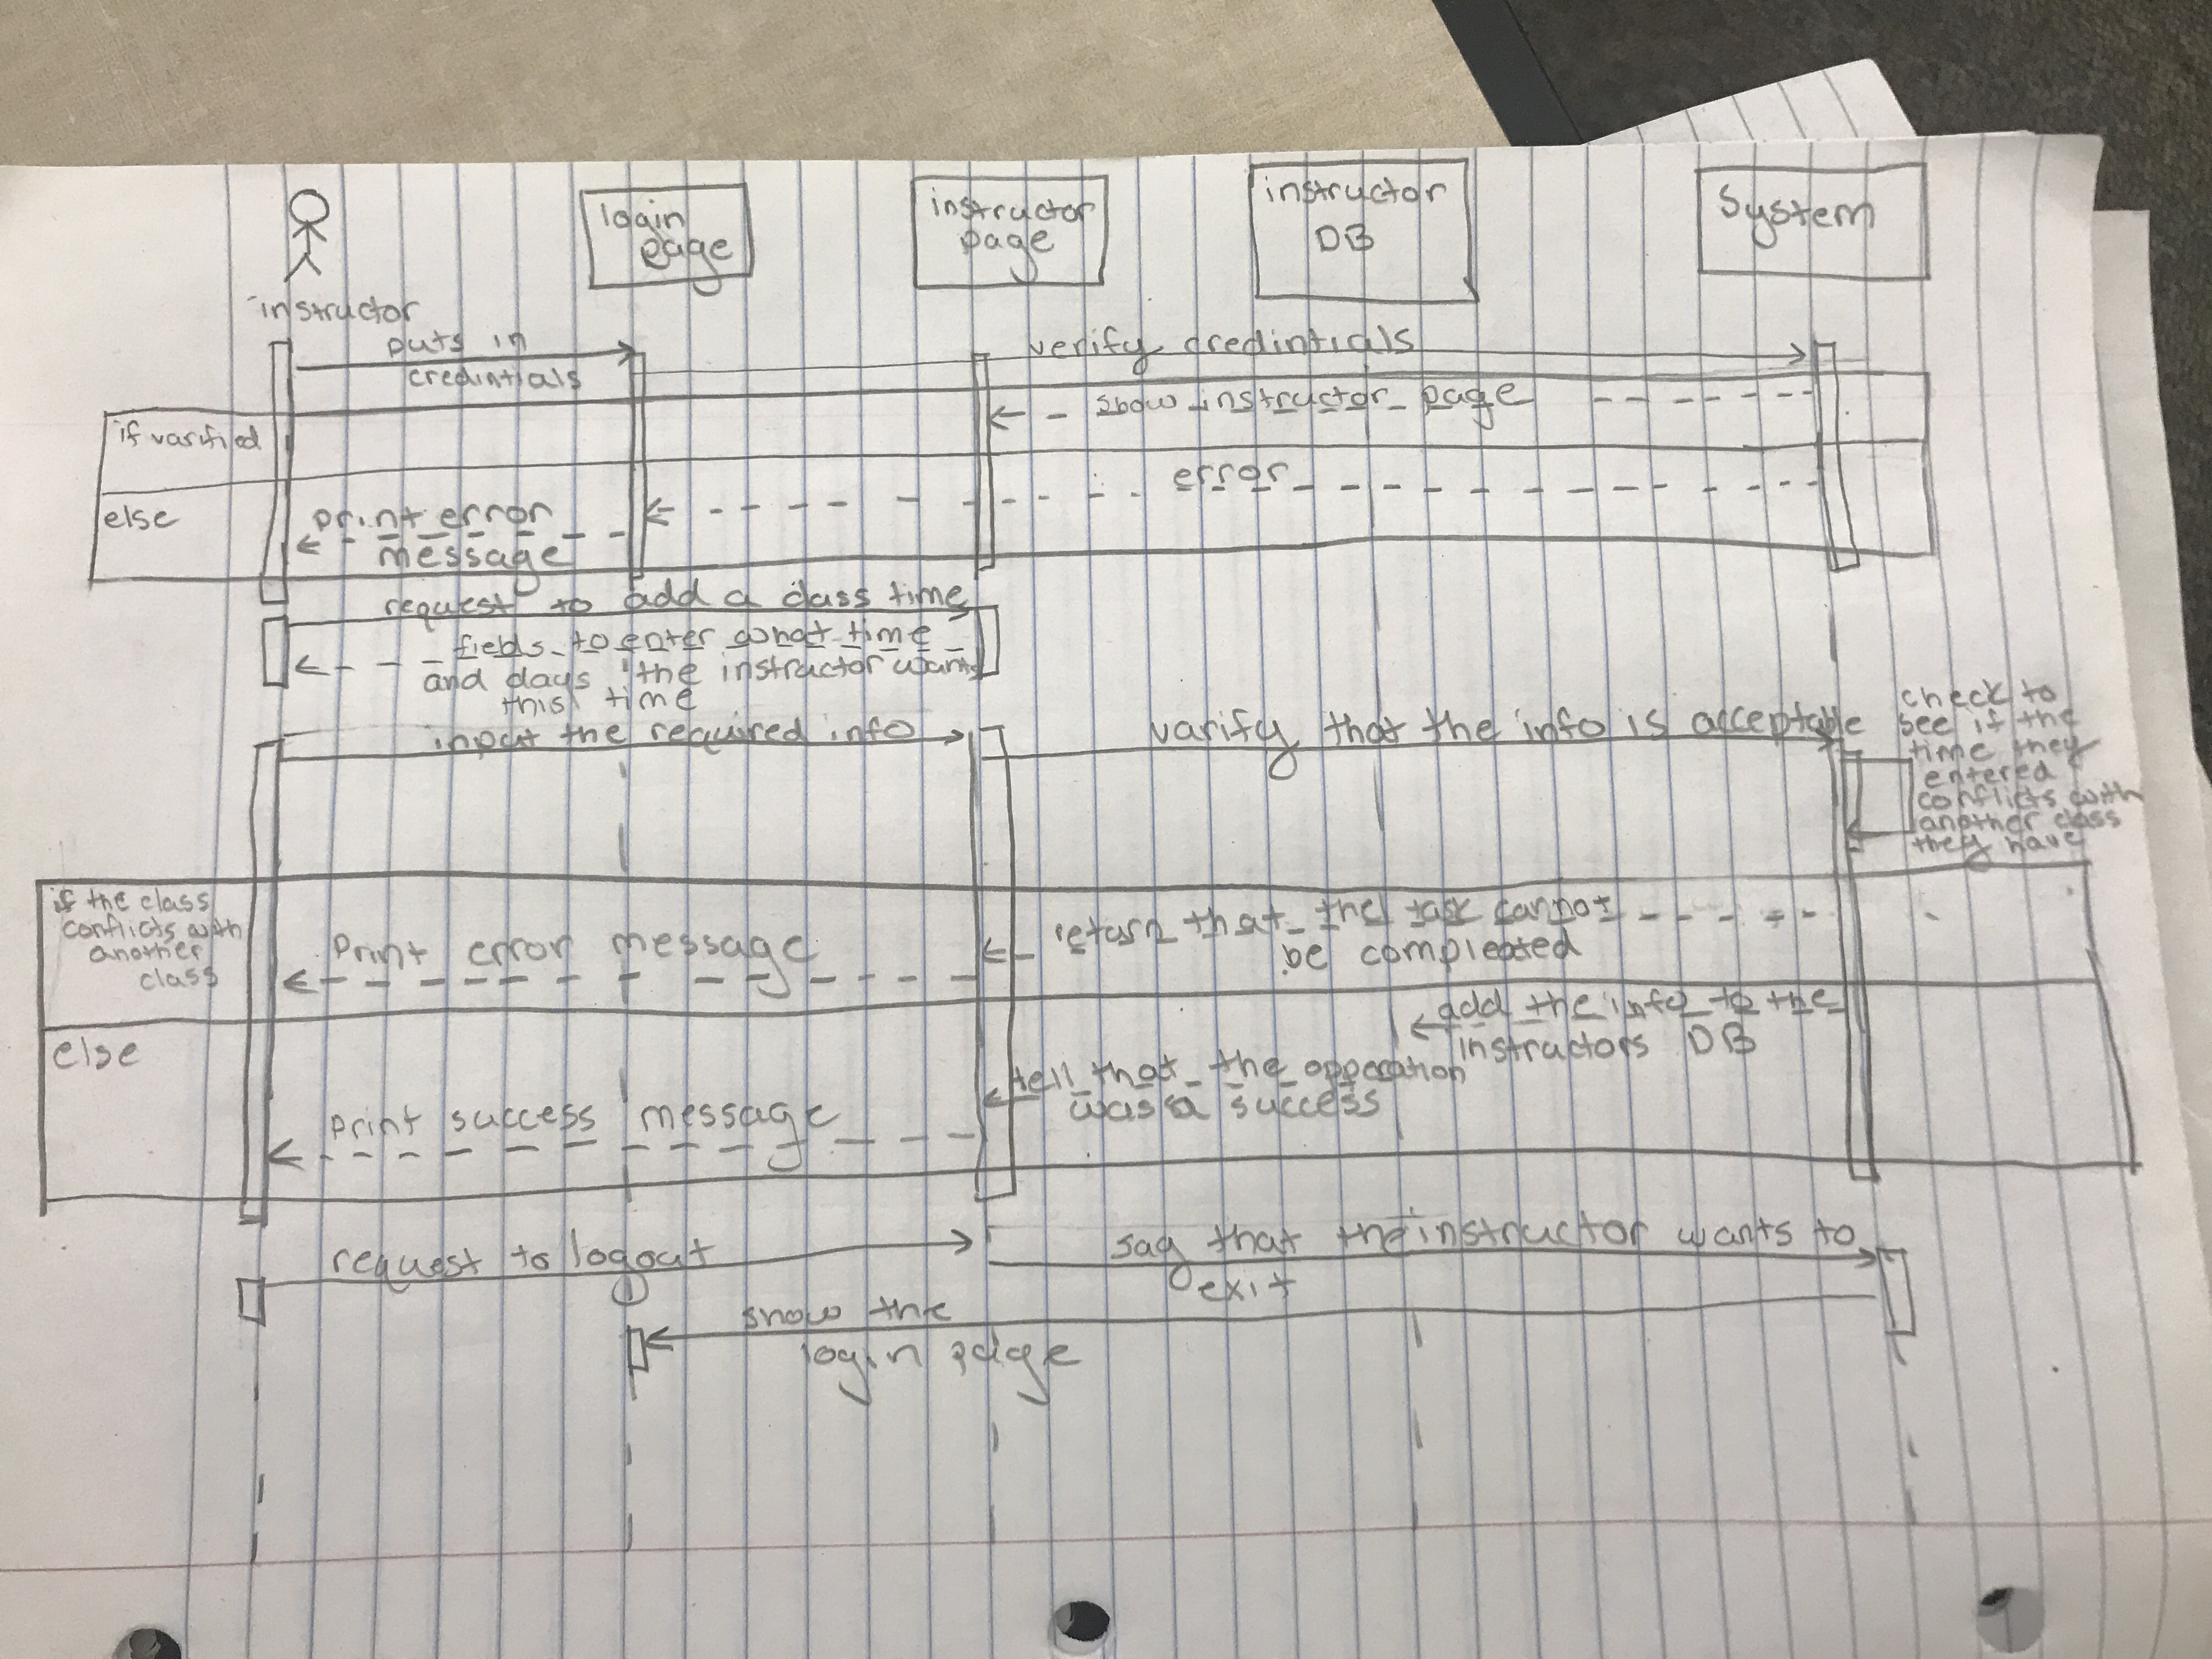 login
page
instructor
page
instructor
DB
System
instructor
puts in
credintials
verify credintials
show instructor page
if varified
error
else
print error
message
request to add a class time
fields to enter what time
and days the instructor wants
this time
input the required info
varify that the info is acceptable
check to
see if the
time they
entered
conflicts with
another class
they have
if the class
conflicts with
another
class
return that the task cannot
be compleated
Print error message
add the info to the
instructors DB
else
tell that the opperation
was a success
Print success message
request to logout
say that the instructor wants to
exit
show the
login page